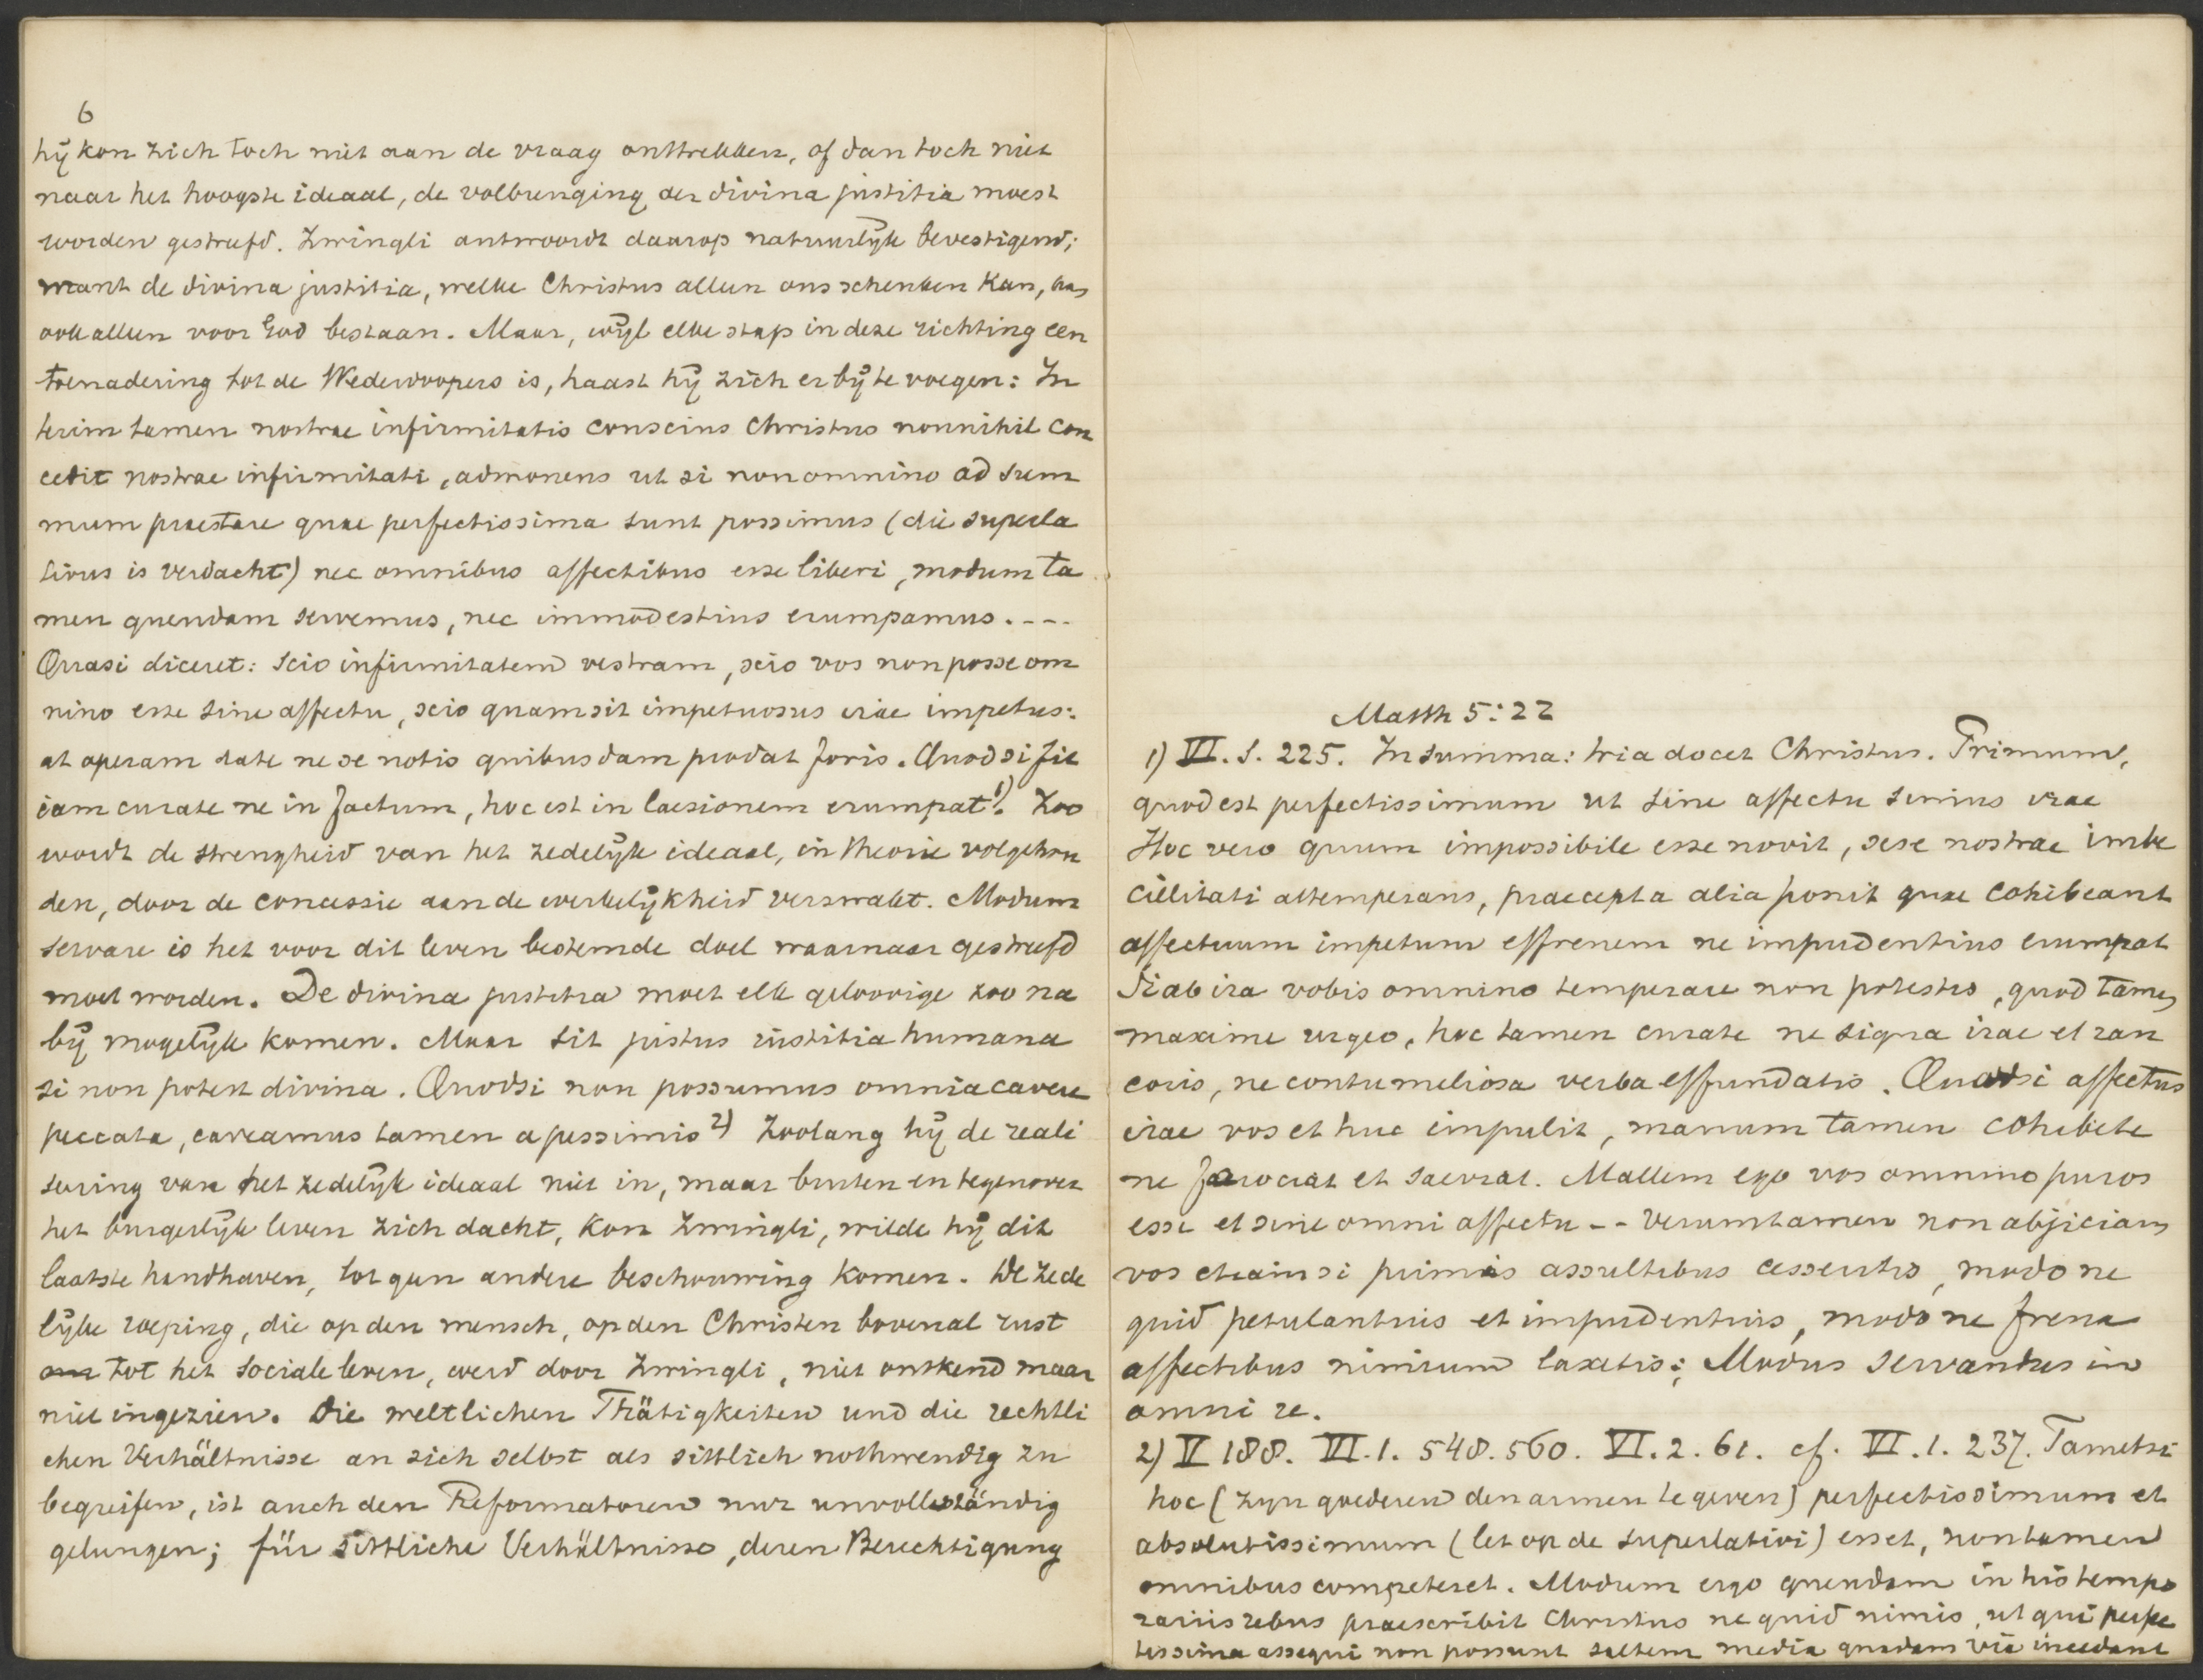 6
hÿ kon zich toch niet aan de vraag onttrekken, of dan toch niet
naar het hoogste ideaal, de volbrenging der divina justitia moest
worden gestreefd. Zwingli antwoordt daarop natuurlÿk bevestigend;
want de divina justitia, welke Christus alleen ons schenken kan, kan
ook alleen voor God bestaan. Maar, wÿl elke stap in deze richting een
toenadering tot de Wederdoopers is, haast hÿ zich er bÿ te voegen: In
terim tamen nostrae infirmitatis conscius Christus nonnihil con
cedit nostrae infirmitati, admonens ut si non omnino ad sum
mum praestare quae perfectissima sunt possimus (die superla
tivus is verdacht) nec omnibus affectibus esse liberi, modum ta
men quendam servemus, nec immodestius erumpamus. ---
Quasi diceret: scio infirmitatem vestram, scio vos non posse om
nino esse sine affectu, scio quam sit impetuosus irae impetus:
at operam date ne se notis quibusdam prodat foris. Quod si fit
iam curate ne in factum, hoc est in laesionem erumpat 1). Zoo
wordt de strengheid van het zedelÿk ideaal, in theorie volgehou
den, door de concessie aan de werkelÿkheid verzwakt. Modum
servare is het voor dit leven bestemde doel waarnaar gestreefd
moet worden. De divina justitia moet elk geloovige zoo na
bÿ mogelÿk komen. Maar sit justus iustitia humana
si non potest divina. Quodsi non possumus omnia cavere
peccata, caveamus tamen a pessimis 2) Zoolang hÿ de reali
seering van het zedelÿk ideaal niet in, maar buiten en tegenover
het burgerlÿk leven zich dacht, kon Zwingli, wilde hÿ dit
laatste handhaven, tot geen andere beschouwing komen. De zede
lÿke roeping, die op den mensch, op den Christen bovenal rust
om tot het sociale leven, werd door Zwingli, niet ontkend maar
niet ingezien. Die weltlichen Thätigkeiten und die rechtli
chen Verhältnisse an sich selbst als sittlich nothwendig zu
begreifen, ist auch den Reformatoren nur unvollständig
gelungen; für sittliche Verhältnisse, deren Berechtigung
Matth 5:22
1) VI. 1. 225. In summa: tria docet Christus. Primum,
quod est perfectissimum ut sine affectu simus irae
Hoc vero quum impossibile esse novit, sese nostrae imbe
cillitati attemperans, praecepta alia ponit quae cohibeant
affectuum impetum effrenem ne impudentius erumpat
Si ab ira vobis omnino temperare non potestis, quod tamen
maxime urgeo, hoc tamen curate ne signa irae et ran
coris, ne contumeliosa verba effundatis. Quodsi affectus
irae vos et huc impulit, manum tamen cohibete
ne ferociat et saeviat. Mallem ego vos omnino puros
esse et sine omni affectu -- Verumtamen non abjiciam
vos etiamsi primis assultibus cesseritis, modo ne
quid petulantius et impudentius, modo ne frena
affectibus nimium laxetis; Modus servandus in
omni re.
2) V 188. VI. 1. 548. 560. VI. 2. 61. cf. VI. 1. 237. Tametsi
hoc (zyn goederen den armen te geven) perfectissimum et
absolutissimum (let op de superlativi) esset, non tamen
omnibus competeret. Modum ergo quendam in his tempo
rariis rebus praescribit Christus ne quid nimis, ut qui perfec
tissima assequi non possunt saltem media quadam via incedant